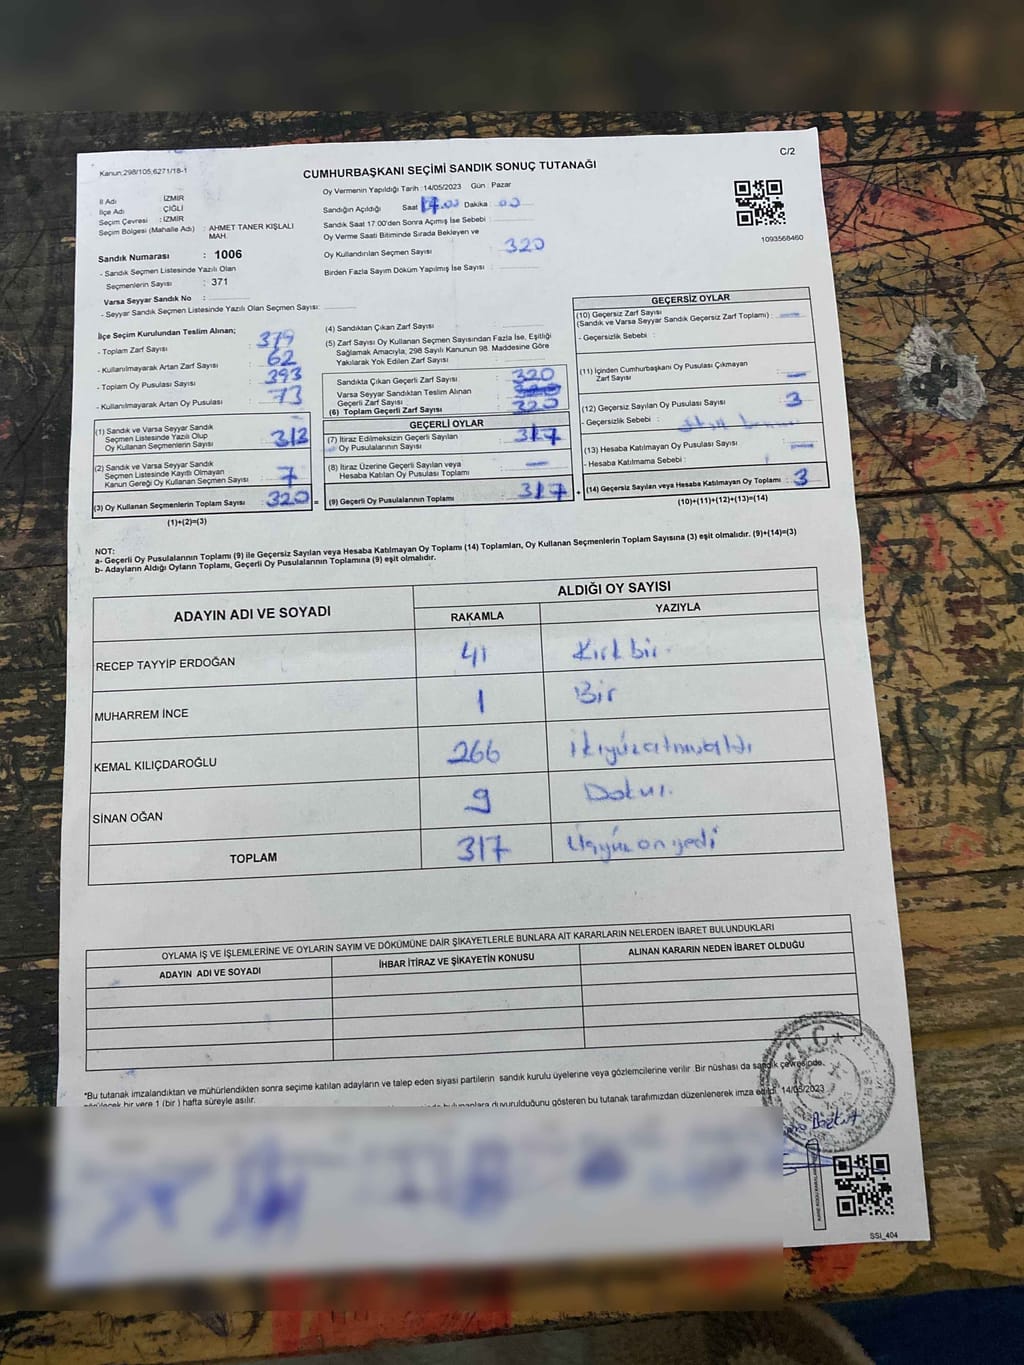 Kanun:298/105;6271/18-1
C/2
CUMHURBAŞKANI SEÇİMİ SANDIK SONUÇ TUTANAĞI
İl Adı : İZMİR
İlçe Adı : ÇİĞLİ
Seçim Çevresi : İZMİR
Seçim Bölgesi (Mahalle Adı) : AHMET TANER KIŞLALI MAH.
Sandık Numarası : 1006
- Sandık Seçmen Listesinde Yazılı Olan
Seçmenlerin Sayısı : 371
Varsa Seyyar Sandık No :
- Seyyar Sandık Seçmen Listesinde Yazılı Olan Seçmen Sayısı:
Oy Vermenin Yapıldığı Tarih : 14/05/2023 Gün : Pazar
Sandığın Açıldığı Saat Dakika : 00
Sandık Saat 17.00'den Sonra Açılmış İse Sebebi :
Oy Verme Saati Bitiminde Sırada Bekleyen ve
Oy Kullandırılan Seçmen Sayısı : 320
Birden Fazla Sayım Döküm Yapılmış İse Sayısı :
1093568460
İlçe Seçim Kurulundan Teslim Alınan;
- Toplam Zarf Sayısı : 379
- Kullanılmayarak Artan Zarf Sayısı : 62
- Toplam Oy Pusulası Sayısı : 393
- Kullanılmayarak Artan Oy Pusulası : 73
(1) Sandık ve Varsa Seyyar Sandık
Seçmen Listesinde Yazılı Olup
Oy Kullanan Seçmenlerin Sayısı : 313
(2) Sandık ve Varsa Seyyar Sandık
Seçmen Listesinde Kayıtlı Olmayan
Kanun Gereği Oy Kullanan Seçmen Sayısı : 7
(3) Oy Kullanan Seçmenlerin Toplam Sayısı : 320 =
(1)+(2)=(3)
(4) Sandıktan Çıkan Zarf Sayısı :
(5) Zarf Sayısı Oy Kullanan Seçmen Sayısından Fazla İse, Eşitliği
Sağlamak Amacıyla; 298 Sayılı Kanunun 98. Maddesine Göre
Yakılarak Yok Edilen Zarf Sayısı :
Sandıkta Çıkan Geçerli Zarf Sayısı : 320
Varsa Seyyar Sandıktan Teslim Alınan
Geçerli Zarf Sayısı :
(6) Toplam Geçerli Zarf Sayısı : 320
GEÇERLİ OYLAR
(7) İtiraz Edilmeksizin Geçerli Sayılan
Oy Pusulasının Sayısı : 317
(8) İtiraz Üzerine Geçerli Sayılan veya
Hesaba Katılan Oy Pusulası Toplamı : —
(9) Geçerli Oy Pusulalarının Toplamı : 317 +
GEÇERSİZ OYLAR
(10) Geçersiz Zarf Sayısı
(Sandık ve Varsa Seyyar Sandık Geçersiz Zarf Toplamı) : —
- Geçersizlik Sebebi :
(11) İçinden Cumhurbaşkanı Oy Pusulası Çıkmayan
Zarf Sayısı : —
(12) Geçersiz Sayılan Oy Pusulası Sayısı : 3
- Geçersizlik Sebebi :
(13) Hesaba Katılmayan Oy Pusulası Sayısı : —
- Hesaba Katılmama Sebebi :
(14) Geçersiz Sayılan veya Hesaba Katılmayan Oy Toplamı : 3
(10)+(11)+(12)+(13)=(14)
NOT:
a- Geçerli Oy Pusulalarının Toplamı (9) ile Geçersiz Sayılan veya Hesaba Katılmayan Oy Toplamı (14) Toplamları, Oy Kullanan Seçmenlerin Toplam Sayısına (3) eşit olmalıdır. (9)+(14)=(3)
b- Adayların Aldığı Oyların Toplamı, Geçerli Oy Pusulalarının Toplamına (9) eşit olmalıdır.
ADAYIN ADI VE SOYADI ALDIĞI OY SAYISI
RAKAMLA YAZIYLA
RECEP TAYYİP ERDOĞAN 41 Kırkbir
MUHARREM İNCE 1 Bir
KEMAL KILIÇDAROĞLU 266 ikiyüzatmışaltı
SİNAN OĞAN 9 Dokuz
TOPLAM 317 Üçyüzonyedi
OYLAMA İŞ VE İŞLEMLERİNE VE OYLARIN SAYIM VE DÖKÜMÜNE DAİR ŞİKAYETLERLE BUNLARA AİT KARARLARIN NELERDEN İBARET BULUNDUKLARI
ADAYIN ADI VE SOYADI İHBAR İTİRAZ VE ŞİKAYETİN KONUSU ALINAN KARARIN NEDEN İBARET OLDUĞU
*Bu tutanak imzalandıktan ve mühürlendikten sonra seçime katılan adayların ve talep eden siyasi partilerin sandık kurulu üyelerine veya gözlemcilerine verilir .Bir nüshası da sandık çevresinde
bir yere 1 (bir ) hafta süreyle asılır.
duyurulduğunu gösteren bu tutanak tarafımızdan düzenlenerek imza edildi. 14/05/2023
T.C
SSİ_404